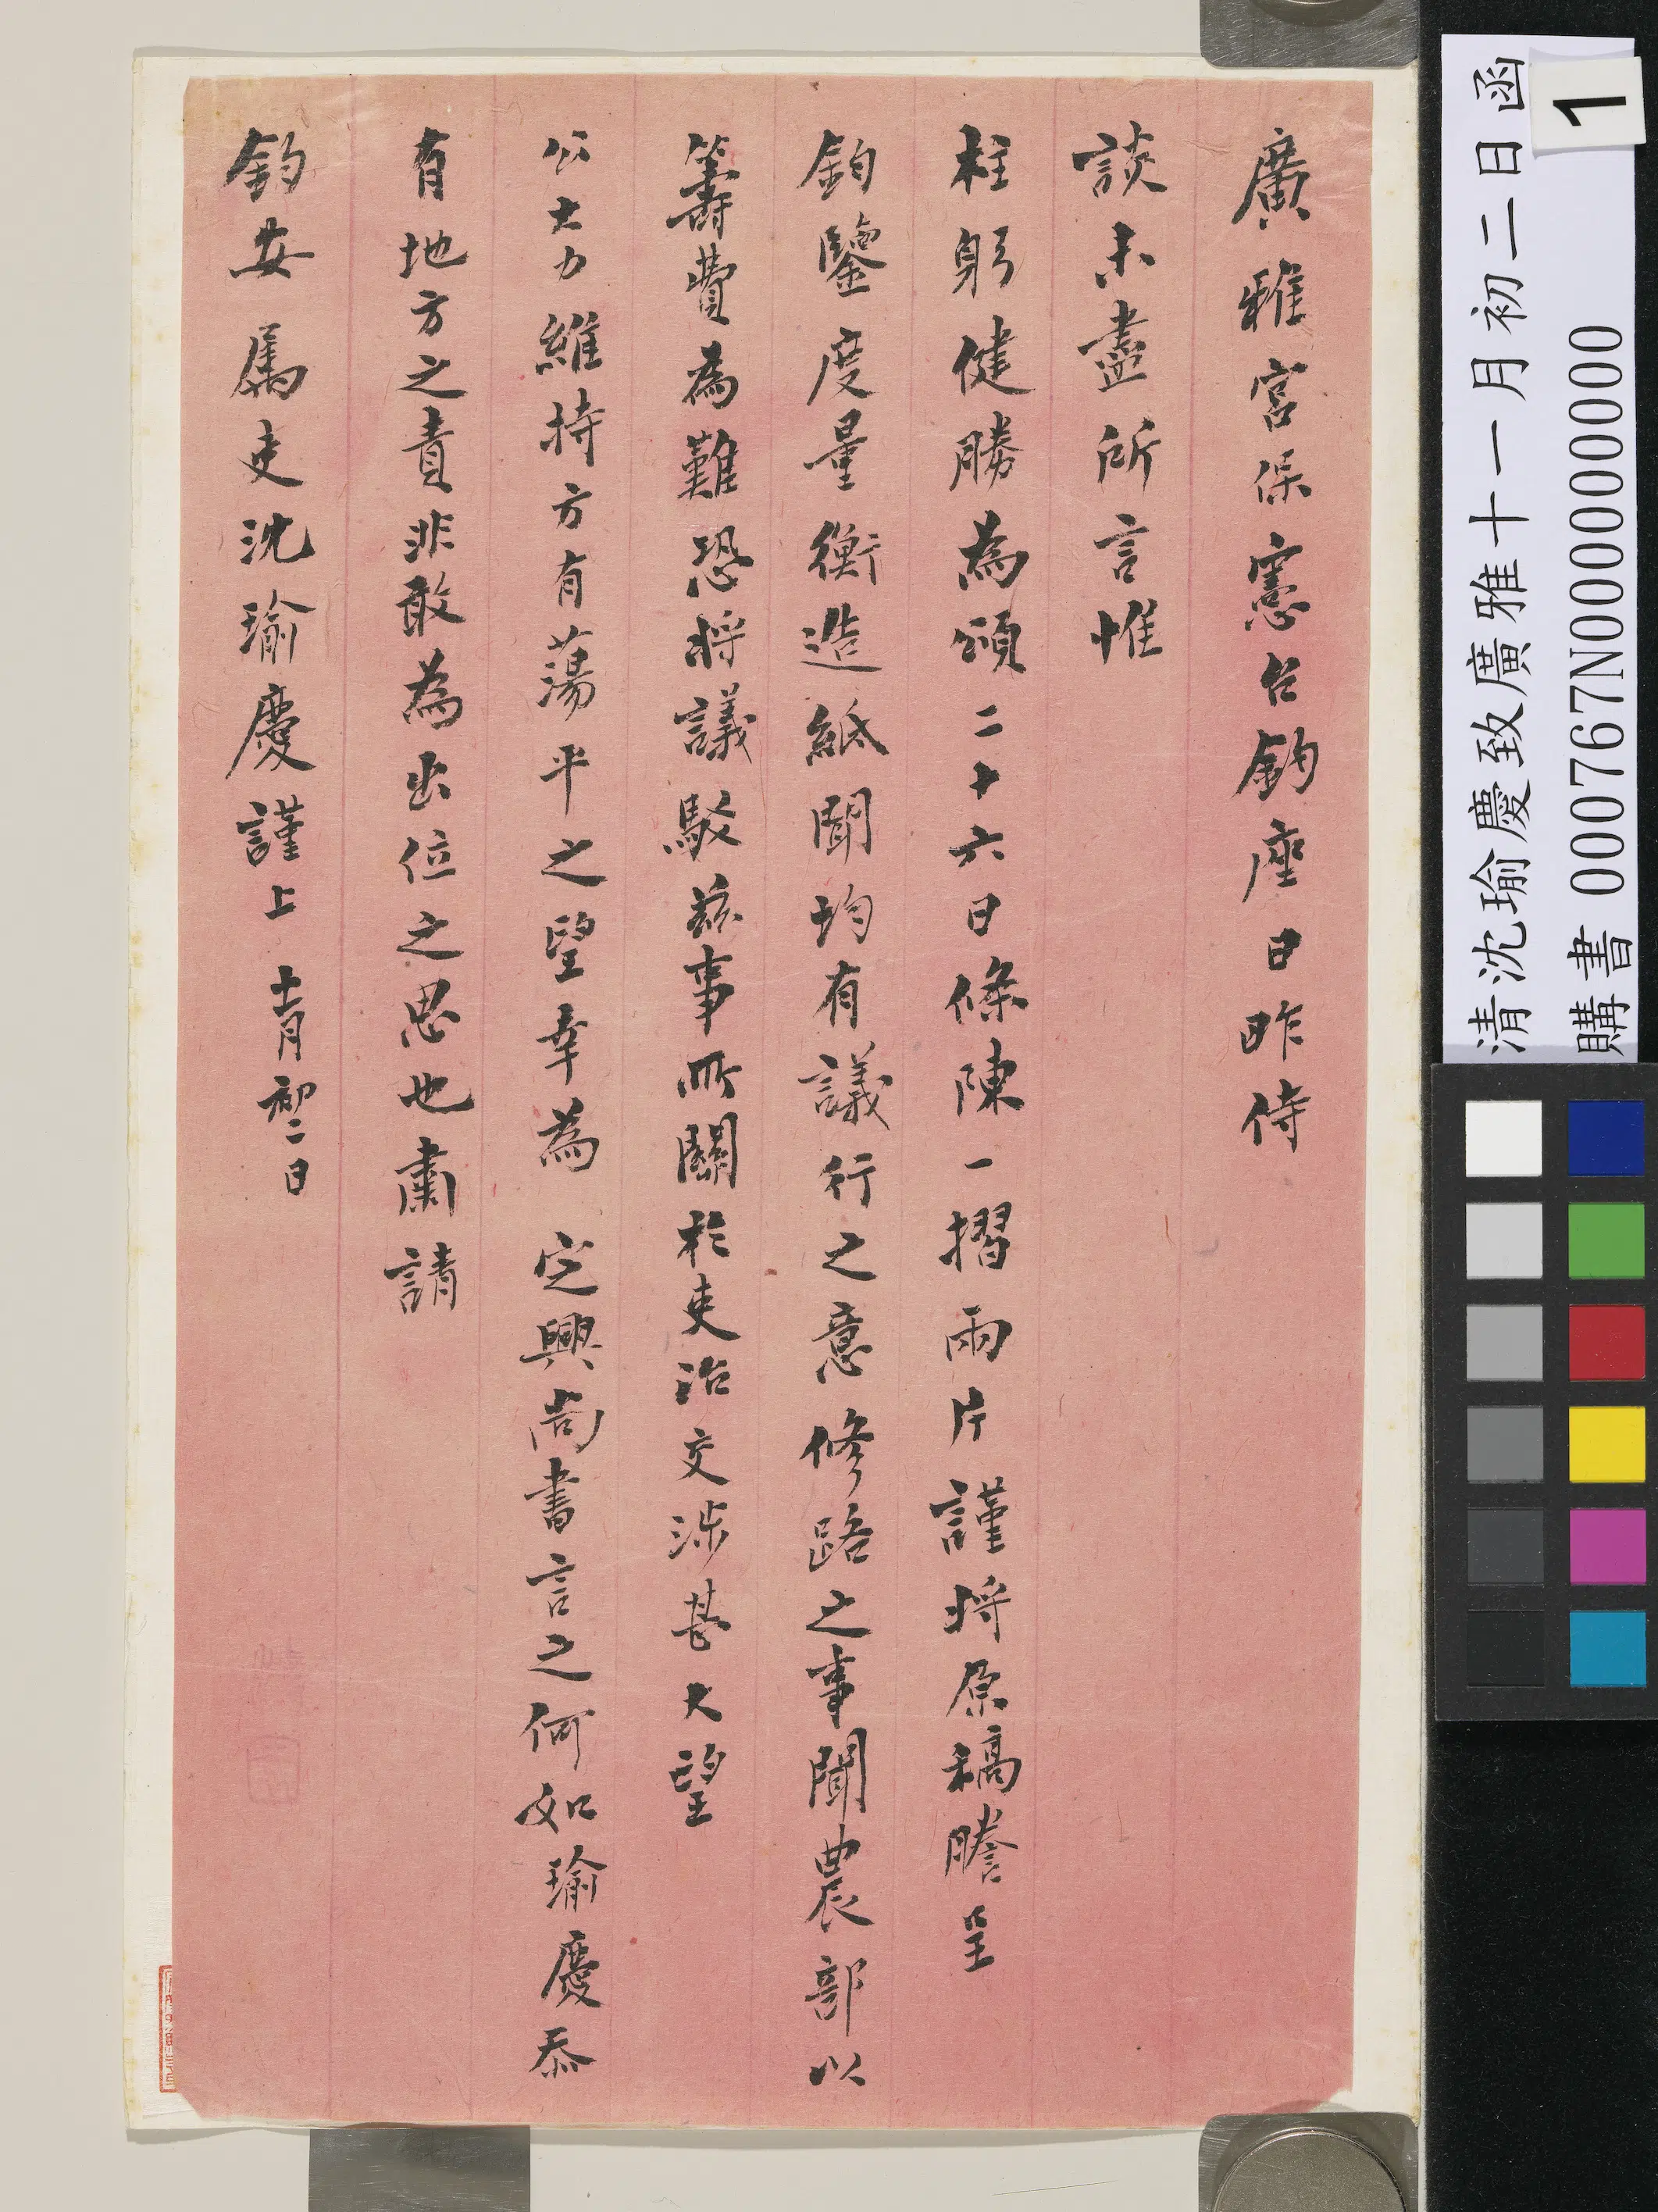 廣雅宮保憲台鈞座日昨侍
談未盡所言惟
柱躬健勝為頌二十六日條陳一摺兩片謹將原稿謄呈
鈞鑒度量衡造紙聞均有議行之意修路之事聞農部以
籌費為難恐將議駁茲事所關於吏治交涉甚大望
公大力維持方有蕩平之望幸為 定興尚書言之何如瑜慶忝
有地方之責非敢為出位之思也肅請
鈞安屬吏沈瑜慶謹上 十一月初二日
清沈瑜慶致廣雅十一月初二日函
購書 000767N000000000
1